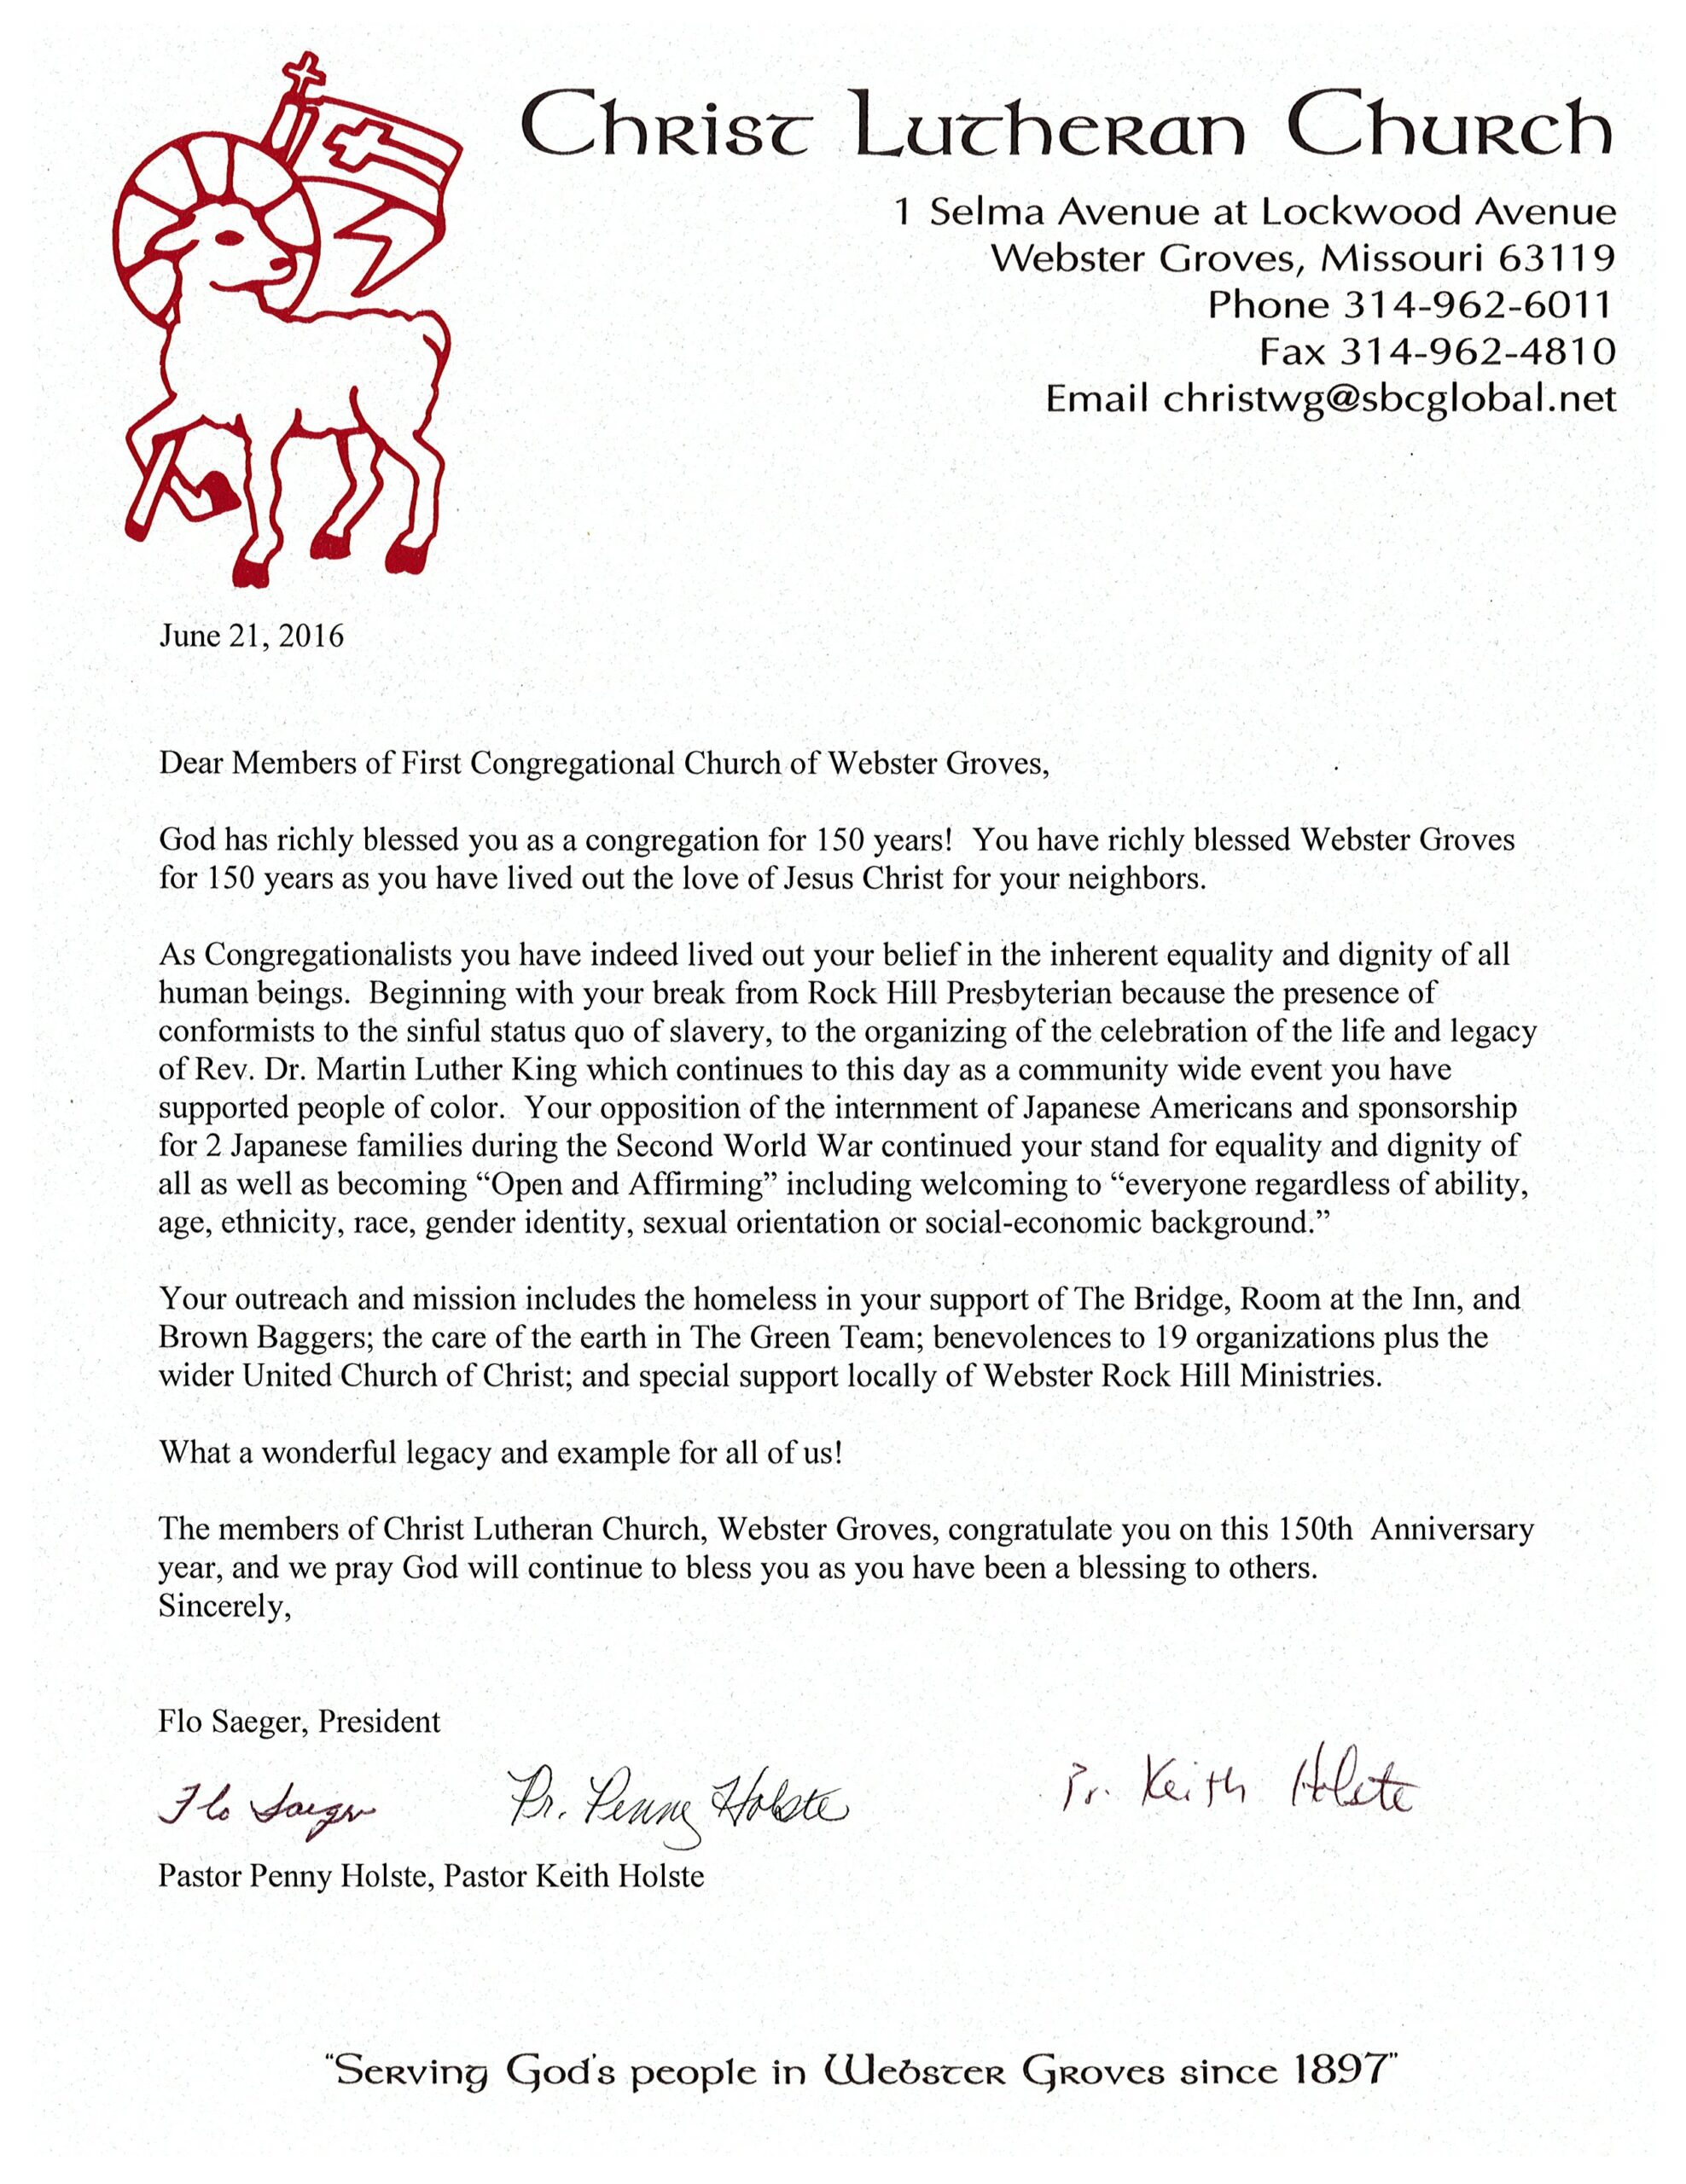 Christ Lutheran Church
1 Selma Avenue at Lockwood Avenue
Webster Groves, Missouri 63119
Phone 314-962-6011
Fax 314-962-4810
Email christwg@sbcglobal.net
June 21, 2016
Dear Members of First Congregational Church of Webster Groves,
God has richly blessed you as a congregation for 150 years!  You have richly blessed Webster Groves
for 150 years as you have lived out the love of Jesus Christ for your neighbors.
As Congregationalists you have indeed lived out your belief in the inherent equality and dignity of all
human beings.  Beginning with your break from Rock Hill Presbyterian because the presence of
conformists to the sinful status quo of slavery, to the organizing of the celebration of the life and legacy
of Rev. Dr. Martin Luther King which continues to this day as a community wide event you have
supported people of color.  Your opposition of the internment of Japanese Americans and sponsorship
for 2 Japanese families during the Second World War continued your stand for equality and dignity of
all as well as becoming “Open and Affirming” including welcoming to “everyone regardless of ability,
age, ethnicity, race, gender identity, sexual orientation or social-economic background.”
Your outreach and mission includes the homeless in your support of The Bridge, Room at the Inn, and
Brown Baggers; the care of the earth in The Green Team; benevolences to 19 organizations plus the
wider United Church of Christ; and special support locally of Webster Rock Hill Ministries.
What a wonderful legacy and example for all of us!
The members of Christ Lutheran Church, Webster Groves, congratulate you on this 150th  Anniversary
year, and we pray God will continue to bless you as you have been a blessing to others.
Sincerely,
Flo Saeger, President
Flo Saeger Pr. Penny Holste Pr. Keith Holste
Pastor Penny Holste, Pastor Keith Holste
"Serving God's people in Webster Groves since 1897"